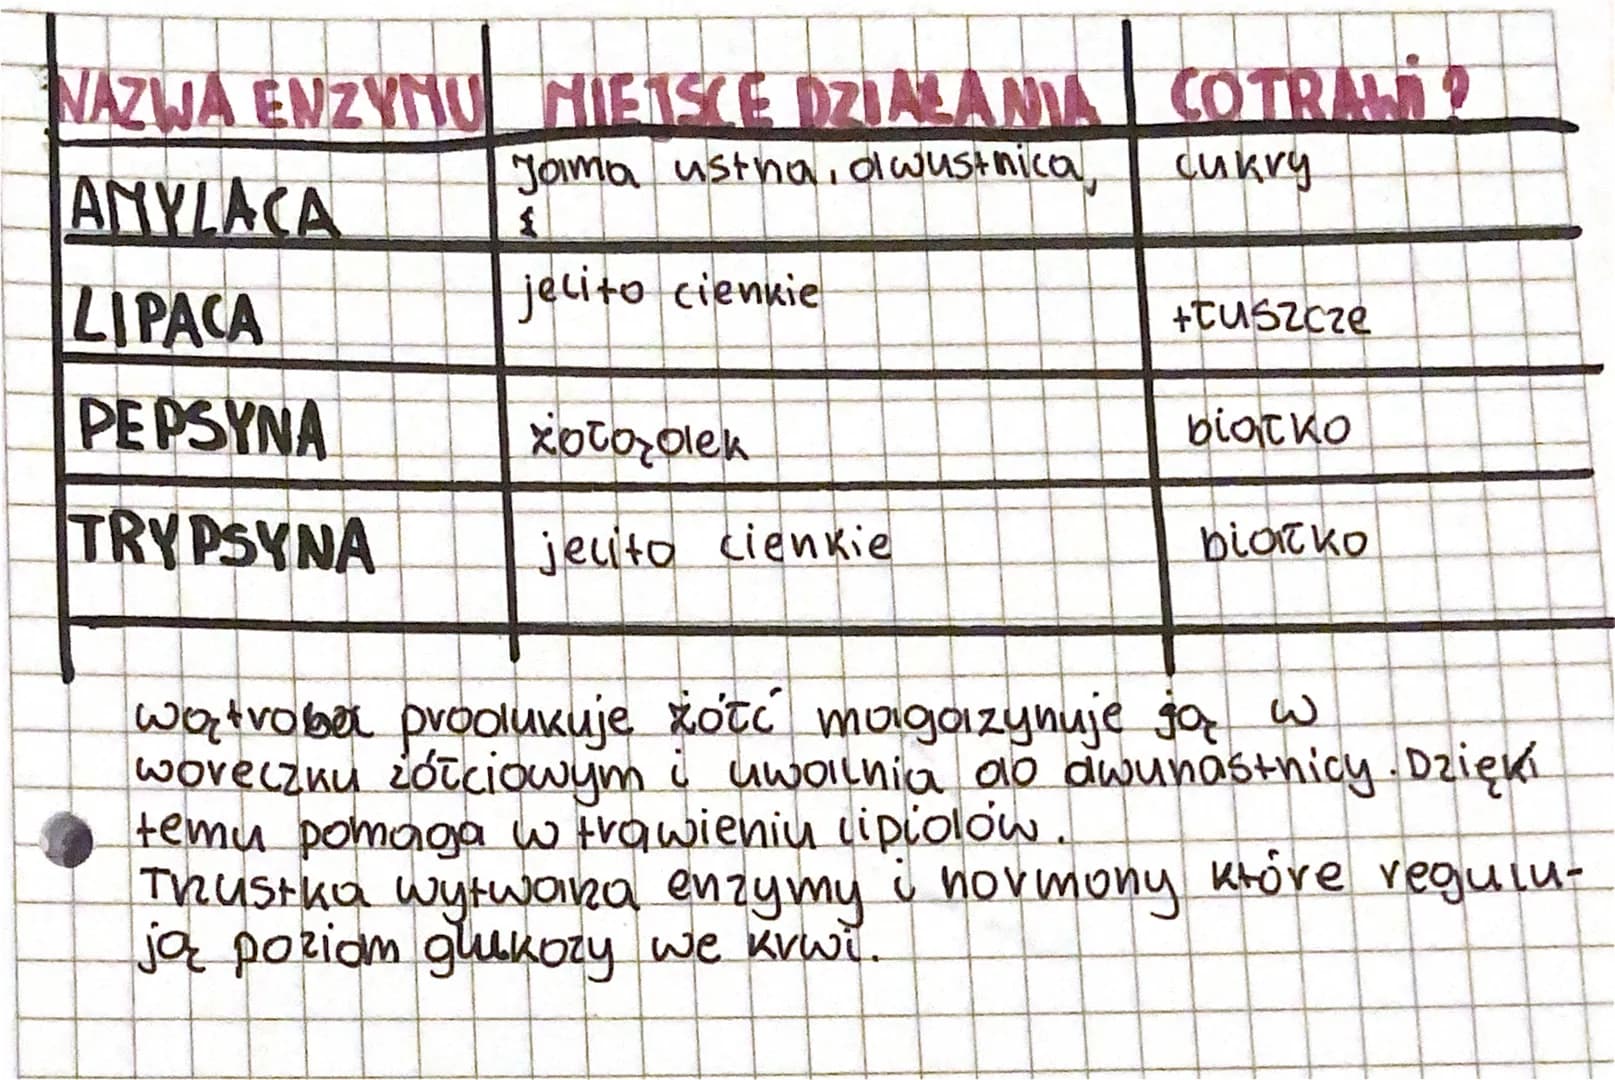 NAZWA ENZYMU MIEJSCE DZIAŁANIA CO TRAWI?
AMYLACA Jama ustna, dwustnica, cukry
LIPACA jelito cienkie tłuszcze
PEPSYNA żołązdek białko
TRYPSYNA jelito cienkie białko
wątroba produkuje żółć magazynuje ją w
woreczku żółciowym i uwalnia do dwunastnicy. Dzięki
temu pomaga w trawieniu lipidów.
Trzustka wytwarza enzymy i hormony które regulu-
ją poziom glukozy we krwi.